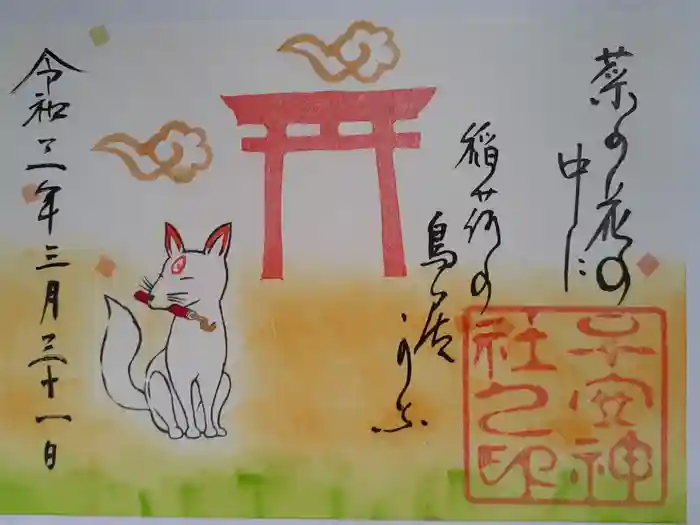 菜の花の
中に
稲荷の
鳥居
かな
令和三年三月三十一日
子安神
社之印